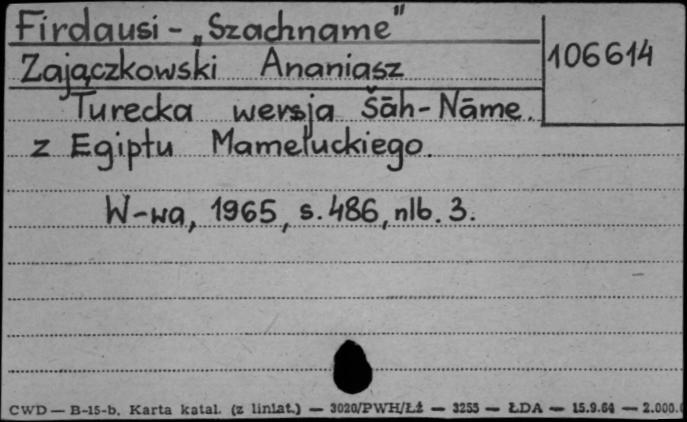 Firdausi - „Szachname"
106614
Zajączkowski Ananiasz
Turecka wersja Šāh-Nāme.
z Egiptu Mameluckiego.
W-wa, 1965, s. 486, nlb. 3.
CWD — B-15-b. Karta katal. (z liniat.) — 3020/PWH/Łż — 3255 — ŁDA — 15.9.64 — 2.000.